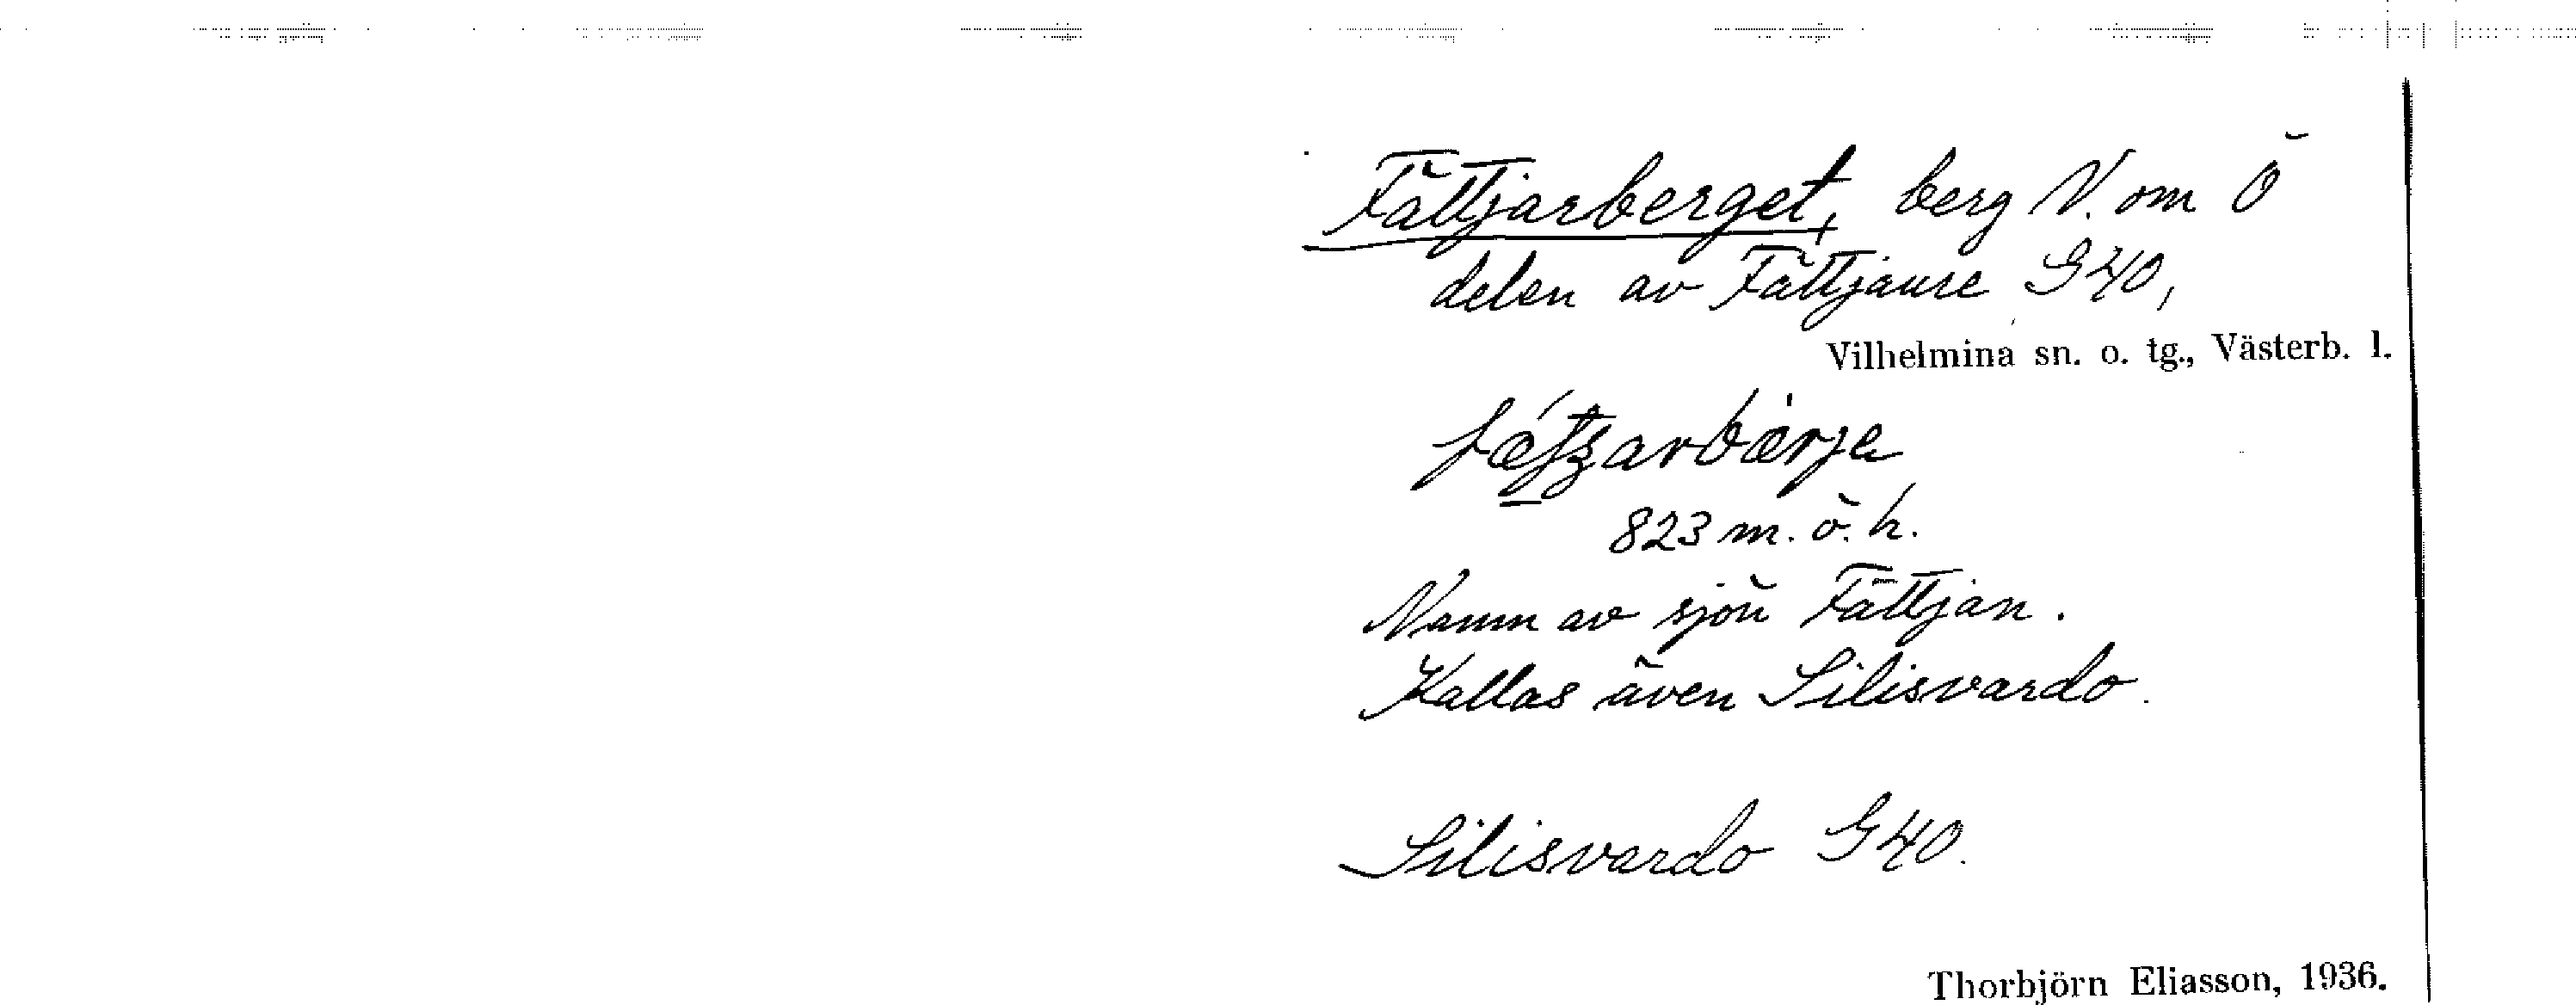 Fättjarberget, berg N. om Ö
delen av Fättjaure G40,
Vilhelmina sn. o. tg., Västerb. l.
823 m. ö. h.
Namn av sjön Fättjan.
Kallas även Silisvardo.
Silisvardo G40.
Thorbjörn Eliasson, 1936.